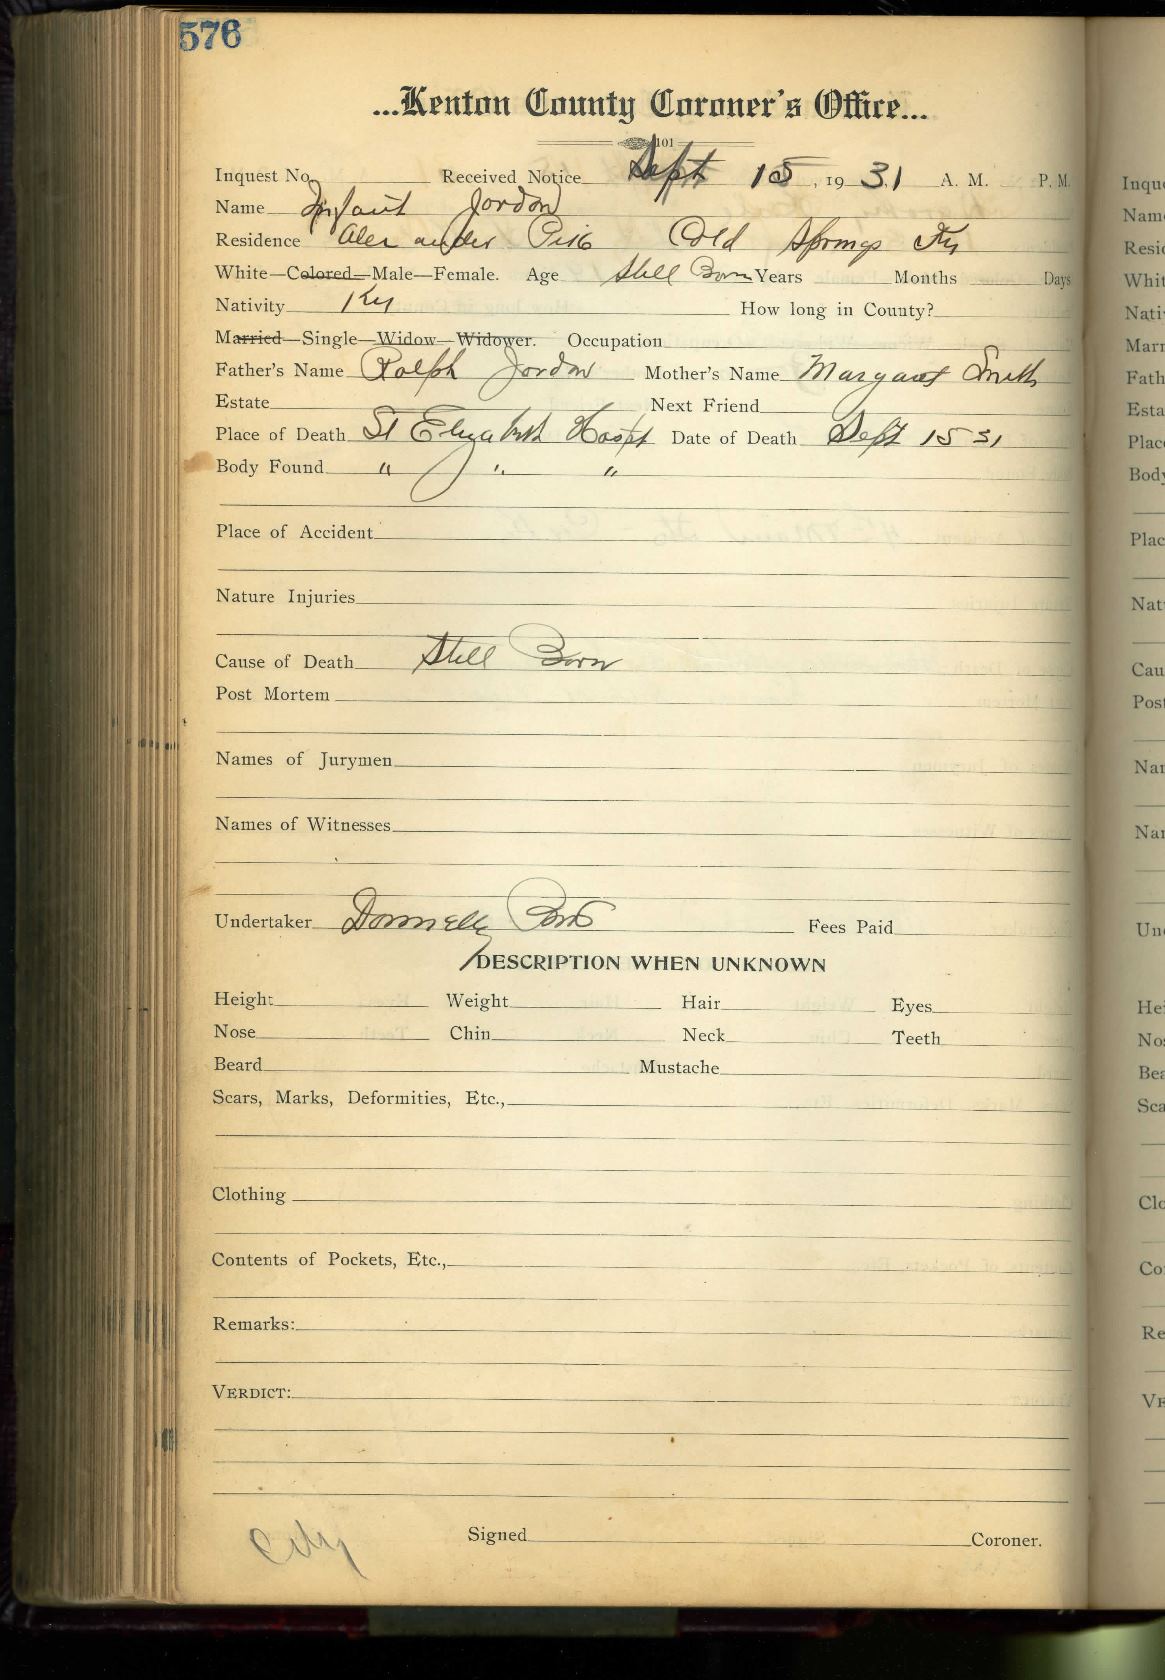 576
...Kenton County Coroner's Office...
101
Inquest No. Received Notice Sept 15, 1931 A. M. P. M.
Name Infant Jordon
Residence Alexander Pike Cold Springs Ky
White—Colored—Male—Female. Age Still Born Years Months Days
Nativity Ky How long in County?
Married—Single—Widow—Widower. Occupation
Father's Name Ralph Jordon Mother's Name Margaret Smith
Estate Next Friend
Place of Death St Elizabeth Hospt Date of Death Sept 15 31
Body Found " " "
Place of Accident
Nature Injuries
Cause of Death Still Born
Post Mortem
Names of Jurymen
Names of Witnesses
Undertaker Donnelly Bros Fees Paid
DESCRIPTION WHEN UNKNOWN
Height Weight Hair Eyes
Nose Chin Neck Teeth
Beard Mustache
Scars, Marks, Deformities, Etc.,
Clothing
Contents of Pockets, Etc.,
Remarks:
VERDICT:
City Signed Coroner.
Inqu
Name
Resid
Whit
Nativ
Marr
Fath
Esta
Place
Body
Plac
Nat
Cau
Post
Nar
Nar
Un
Hei
Nos
Bea
Sca
Clo
Co
Re
VE